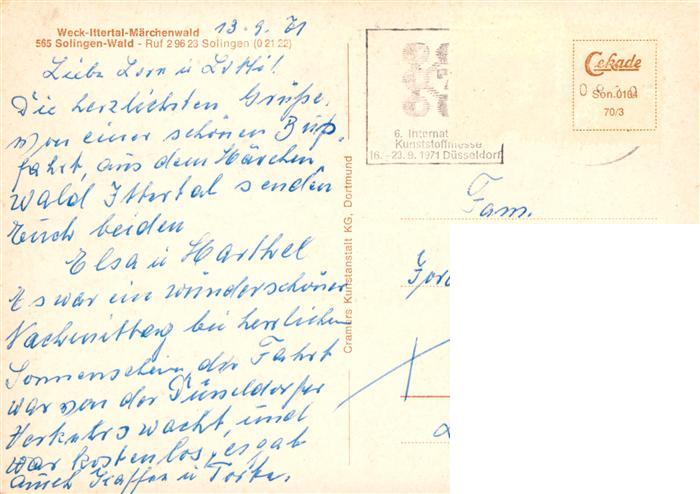 Weck-Ittertal-Märchenwald
565 Solingen-Wald - Ruf 2 96 23 Solingen (0 21 22)
13.9.71
Liebe Lora u Lotti!
Die herzlichsten Grüße,
von einer schönen Buß,
fahrt, aus dem Märchen
wald Ittertal senden
Euch beiden
Elsa u Harthel
Es war ein wunderschöner
Nachmittag bei herrlichem
Sonnenschein, die Fahrt
war von der Düsseldorfer
Verkehrswacht, und
war kostenlos, es gab
auch Kaffee u Torte.
Cramers Kunstanstalt KG, Dortmund
6. Internat
Kunststoffmesse
16.-23.9.1971 Düsseldorf
Cekade
Son. 0101
70/3
Fam.